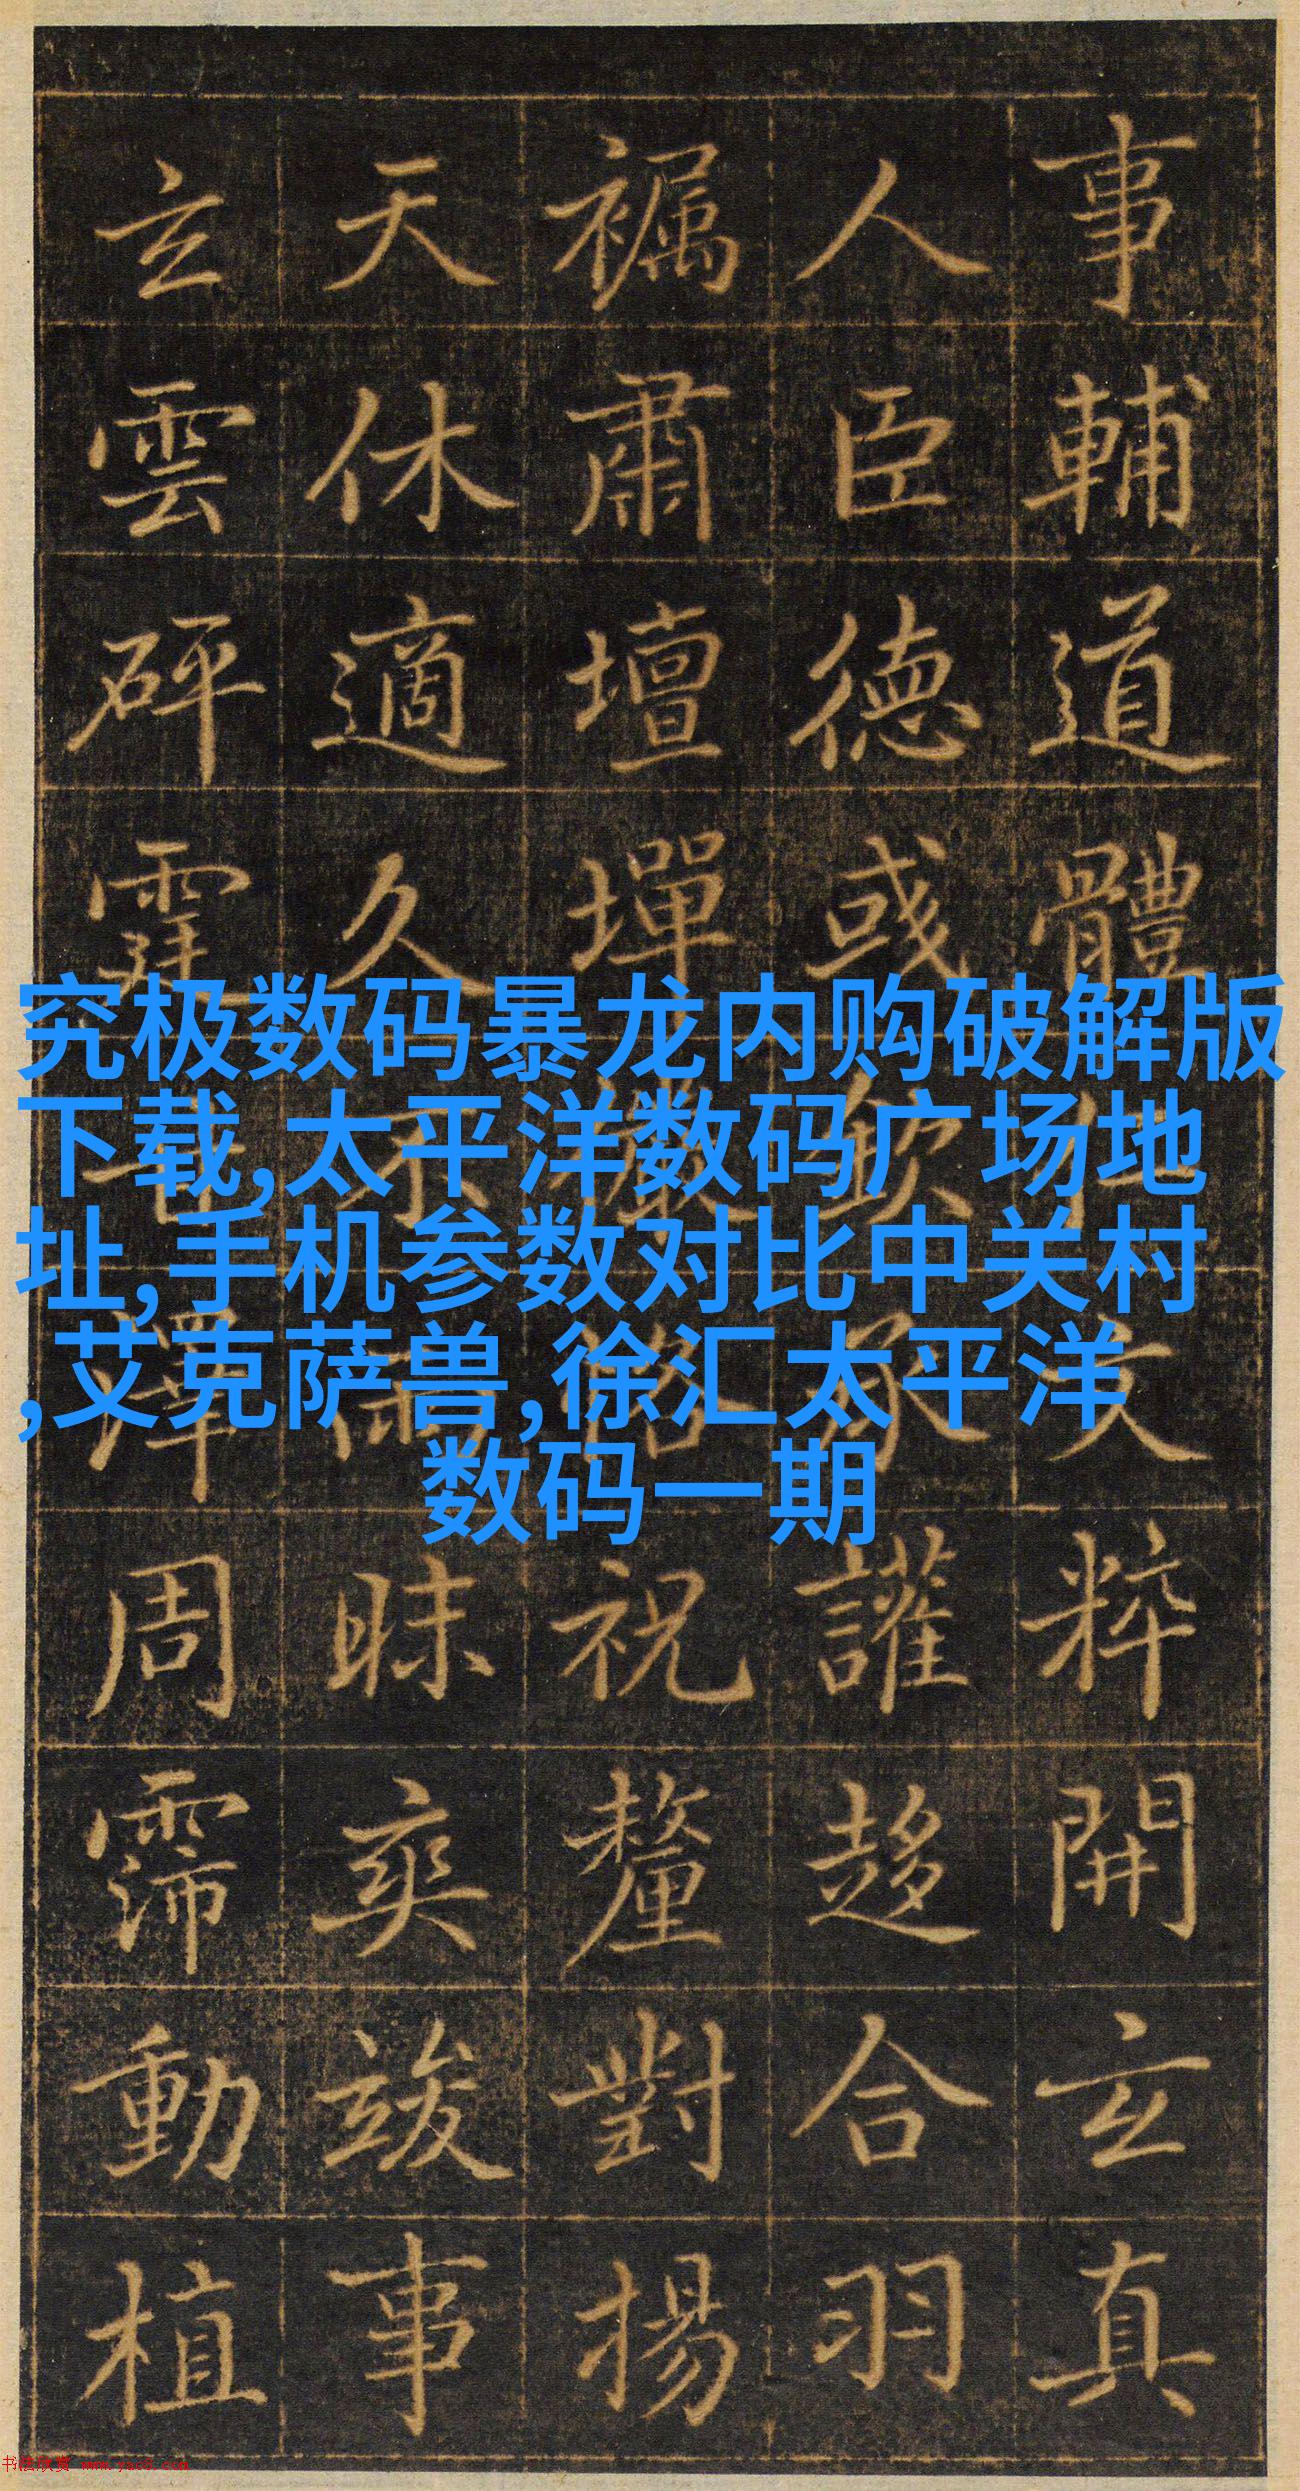 事輔道體文粹開玄真
人臣德或欽讙趍合羽
肅壇墠祝釐對揚
天休適久不雨昧爽竣事
玄雲砰霆澤周霈動植
究极数码暴龙内购破解版
下载,太平洋数码广场地
址,手机参数对比中关村
,艾克萨兽,徐汇太平洋
数码一期
书法欣赏 www.yac8.com